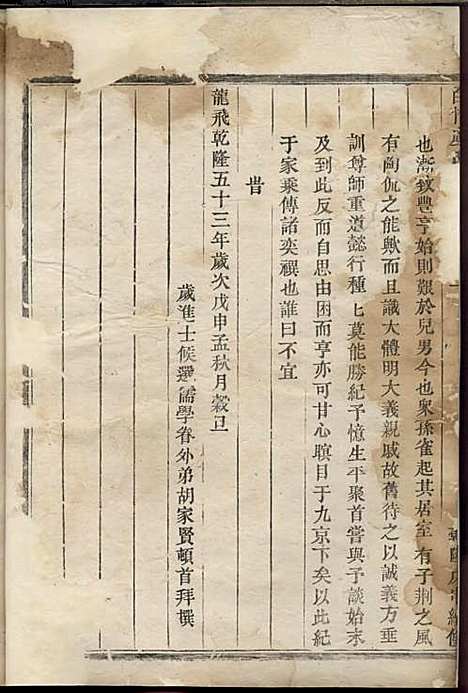 也漸致豐亨始則艱於兒男今也衆孫雀起其居室有子荆之風
有陶侃之能歟而且識大體明大義親戚故舊待之以誠義方垂
訓尊師重道懿行種匕莫能勝紀予憶生平聚首嘗與予談始末
及到此反而自思由困而亨亦可甘心瞑目于九京下矣以此紀
于家乘傳諸奕禩也誰曰不宜
旹
龍飛乾隆五十三年歲次戊申孟秋月穀旦
歲進士候選儒學眷外弟胡家賢頓首拜撰